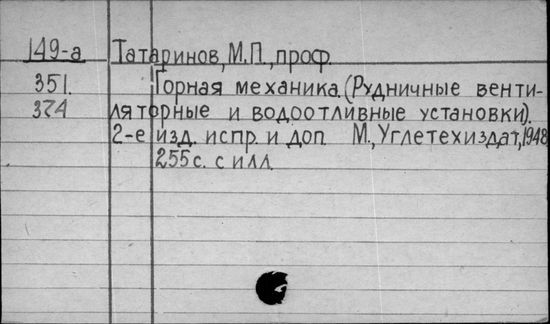 149-а Татаринов, М.П., проф.
351. Горная механика. (Рудничные венти-
374 ляторные и водоотливные установки).
2-е изд. испр. и доп. М., Углетехиздат, 1948
255 с. с илл.